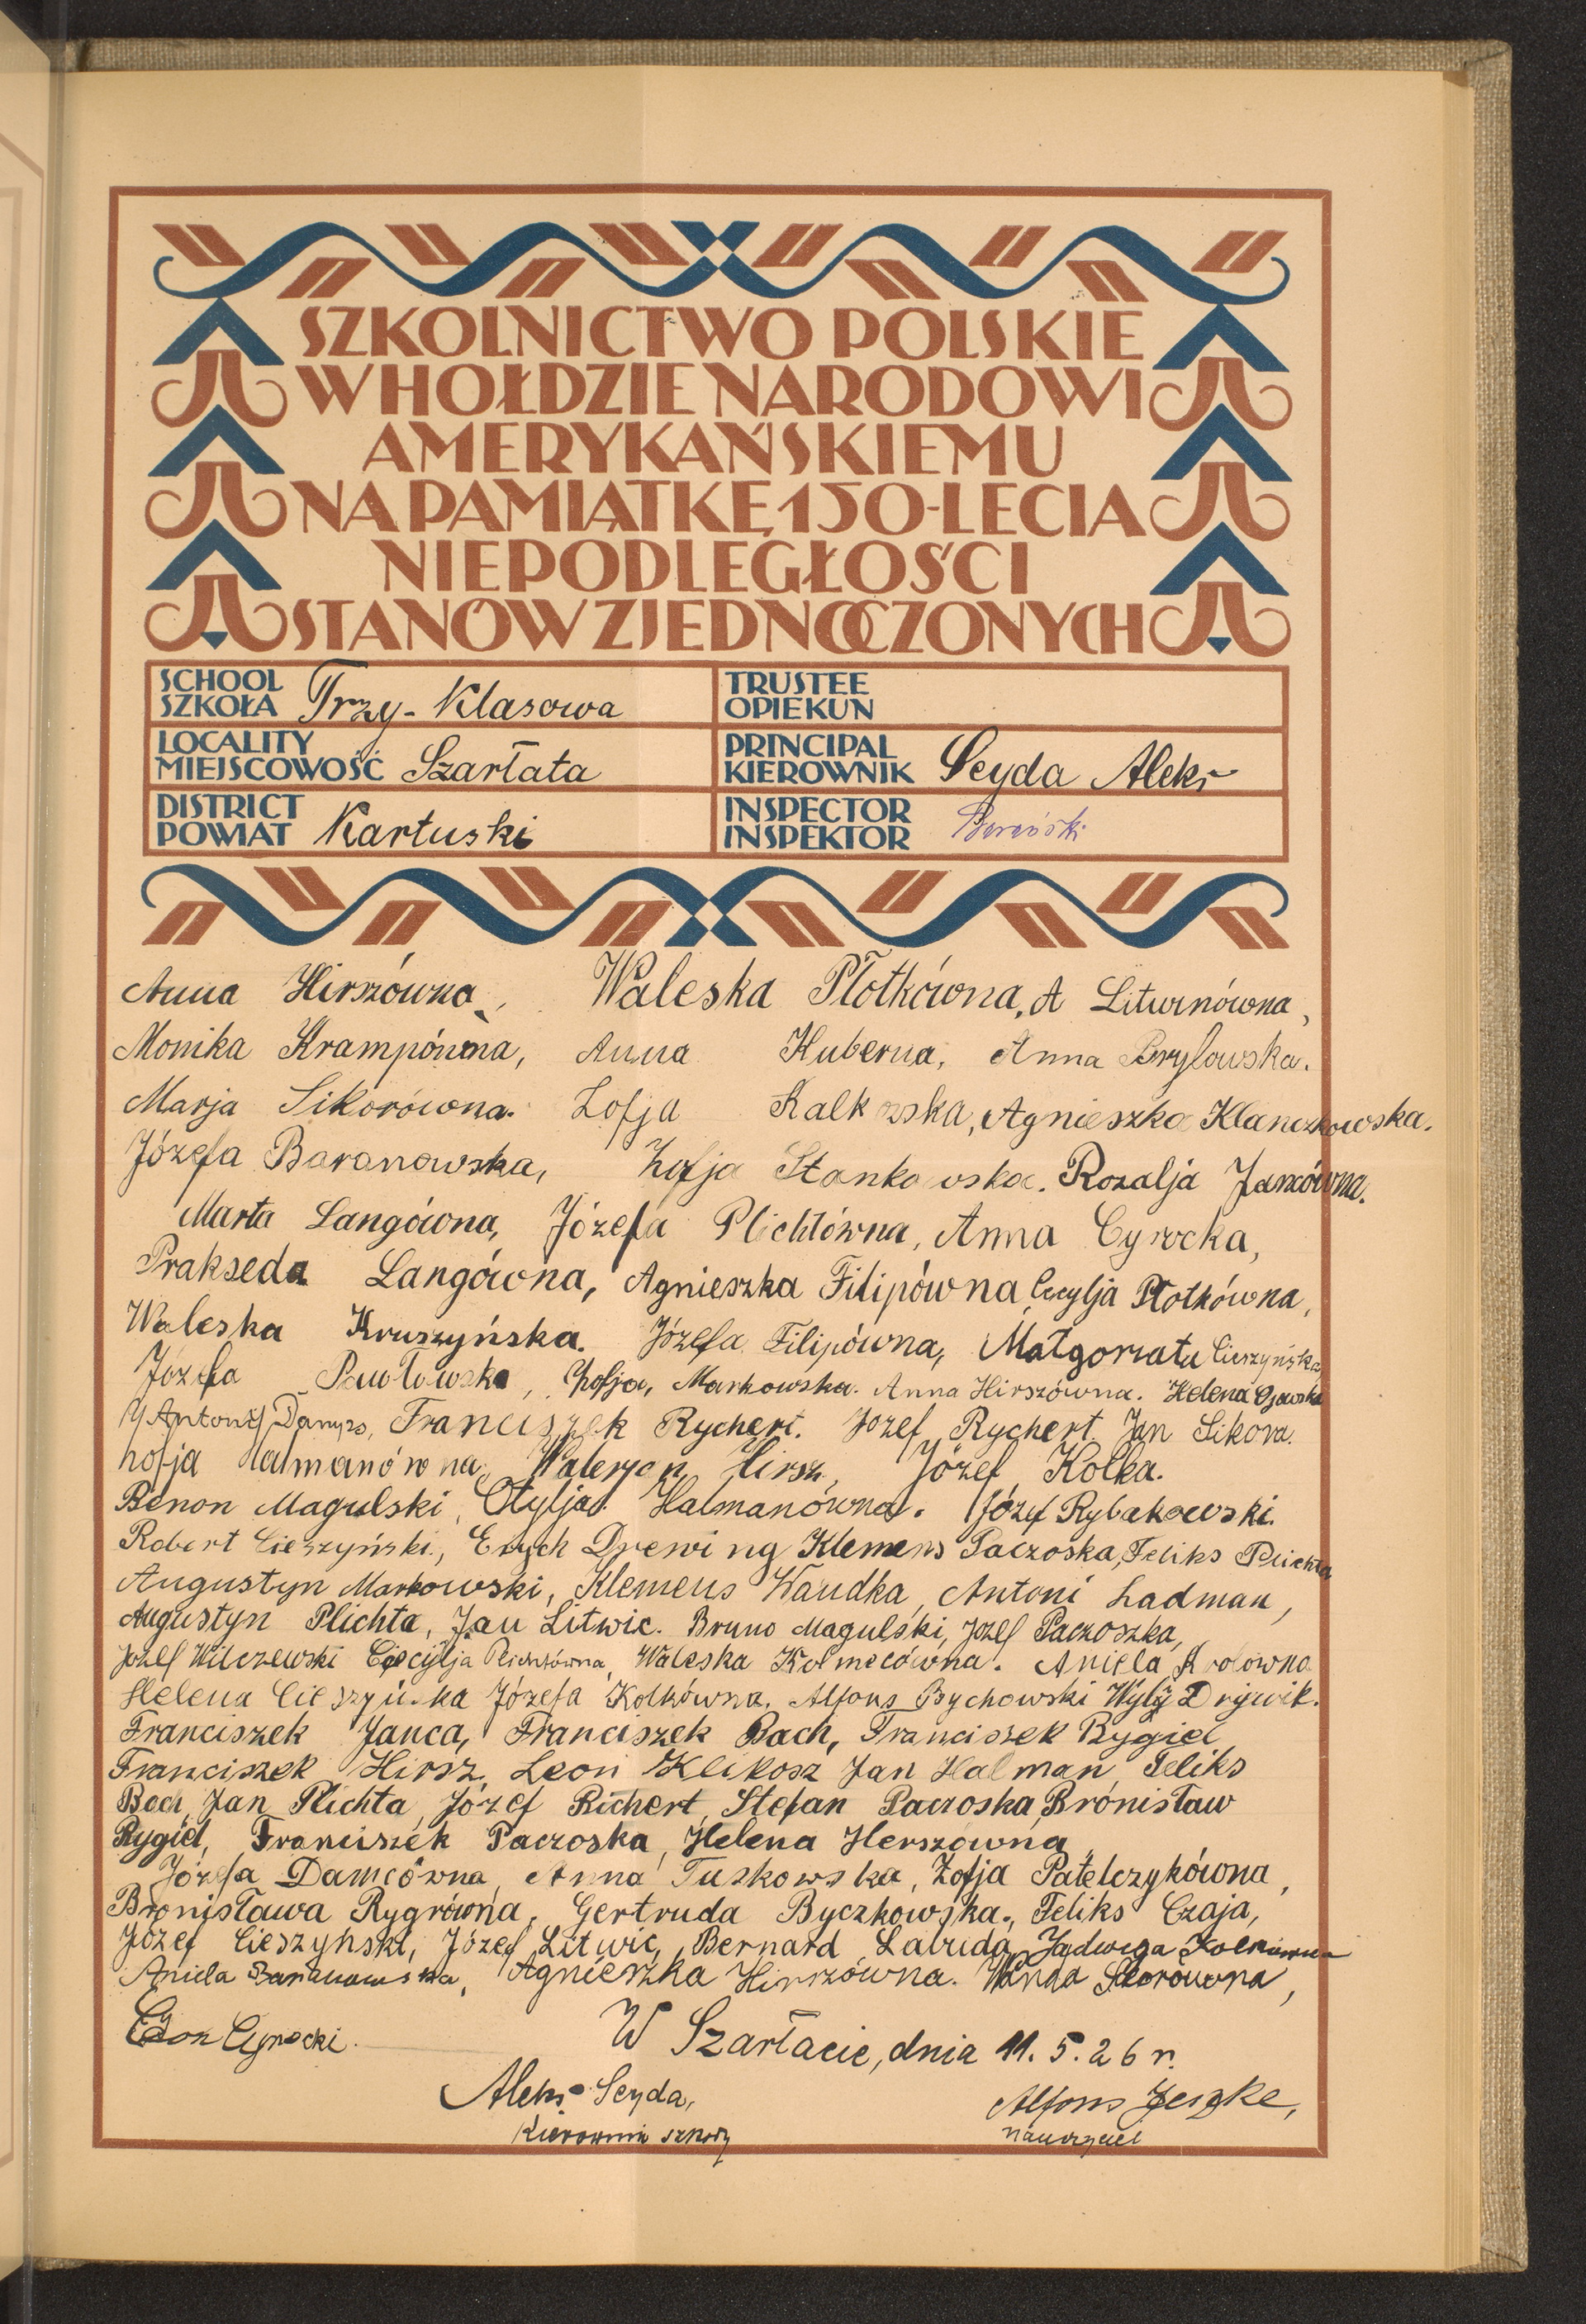 SZKOLNICTWO POLSKIE
W HOŁDZIE NARODOWI
AMERYKAŃSKIEMU
NA PAMIĄTKĘ 150-LECIA
NIEPODLEGŁOŚCI
STANÓW ZJEDNOCZONYCH
SCHOOL
SZKOŁA Trzy-Klasowa
TRUSTEE
OPIEKUN
LOCALITY
MIEJSCOWOŚĆ Szarłata
PRINCIPAL
KIEROWNIK Seyda Aleks
DISTRICT
POWIAT Kartuski
INSPECTOR
INSPEKTOR
Anna Hirszówna, Waleska Płotkówna, A Liturnówna,
Monika Krampówna, Anna Huberna, Anna Bryłowska.
Marja Sikorówna. Zofja Kalkowska, Agnieszka Klanczkowska.
Józefa Baranowska, Zofja Stankowska. Rozalja Jancówna.
Marta Langówna, Józefa Plichtówna, Anna Cyrocka,
Prakseda Langówna, Agnieszka Filipówna, Cecylja Płotkówna,
Waleska Kruszyńska. Józefa Filipówna, Małgorzata Cieszyńska,
Józefa Pawłowska, Zofja, Markowska. Anna Hirszówna. Helena
Antoni Franciszek Rychert. Jozef Rychert. Jan Sikora.
Zofja Halmanówna, Walerjan Hirsz, Józef Kolka.
Benon Magulski, Otylja Halmanówna. Józef Rybakowski.
Robert Cieszyński, Erych Drewing Klemens Paczoska, Feliks Plichta
Augustyn Markowski, Klemens Wandka, Antoni Ladman,
Augustyn Plichta, Jan Litwic. Bruno Magulski, Jozef Paczoszka,
Jozef Wilczewski Cecylja Plichtówna, Waleska Kolmecówna. Aniela
Helena Cieszyńska Józefa Kolkówna. Alfons Bychowski
Franciszek Janca, Franciszek Bach, Franciszek Rygiel
Franciszek Hirsz, Leon Klikosz Jan Halman Feliks
Bach, Jan Plichta, Józef Richert, Stefan Paczoska, Bronisław
Rygiel, Franciszek Paczoska, Helena Herszówna
Józefa Damcówna, Anna Tuskowska, Zofja Patelczykówna,
Bronisława Rygrówna, Gertruda Byczkowska., Feliks Czaja,
Józef Cieszyński, Józef Litwic, Bernard Labuda, Jadwiga Kolkówna
Aniela Baranowska, Agnieszka Hirszówna. Wanda Sikorówna,
Cyrocki.
W Szarłacie, dnia 11. 5. 26 r.
Aleks. Seyda,
Kierownik szkoły
Alfons Jeszke,
nauczyciel